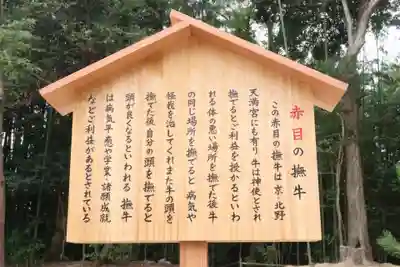 赤目の撫牛
この赤目の撫牛は京、北野
天満宮にも有り 牛は神使とされ
撫でるとご利益を授かるといわ
れる体の悪い場所を撫でた後牛
の同じ場所を撫でると 病気や
怪我を治してくれまた牛の頭を
撫でた後、自分の頭を撫でると
頭が良くなるといわれる 撫牛
は病気平癒や学業・諸願成就
などご利益があるとされている